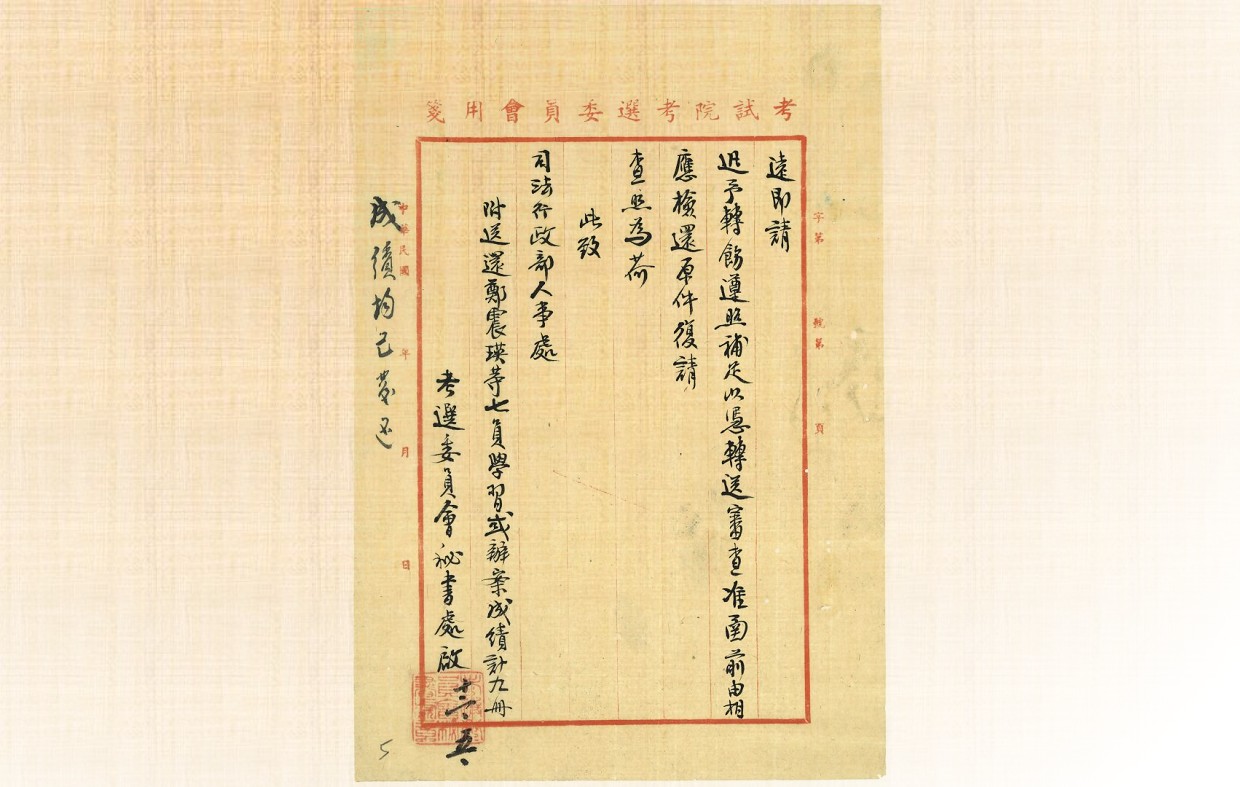 考試院考選委員會用箋
字第　號第　頁
遠即請
迅予轉飭遵照補足以憑轉送審查准函前由相
應檢還原件復請
查照為荷
此致
司法行政部人事處
附送還鄭震瑛等七員學習或辦案成績計九冊
考選委員會秘書處啟
十二、五、
中華民國　年　月　日
成績均已發還
5